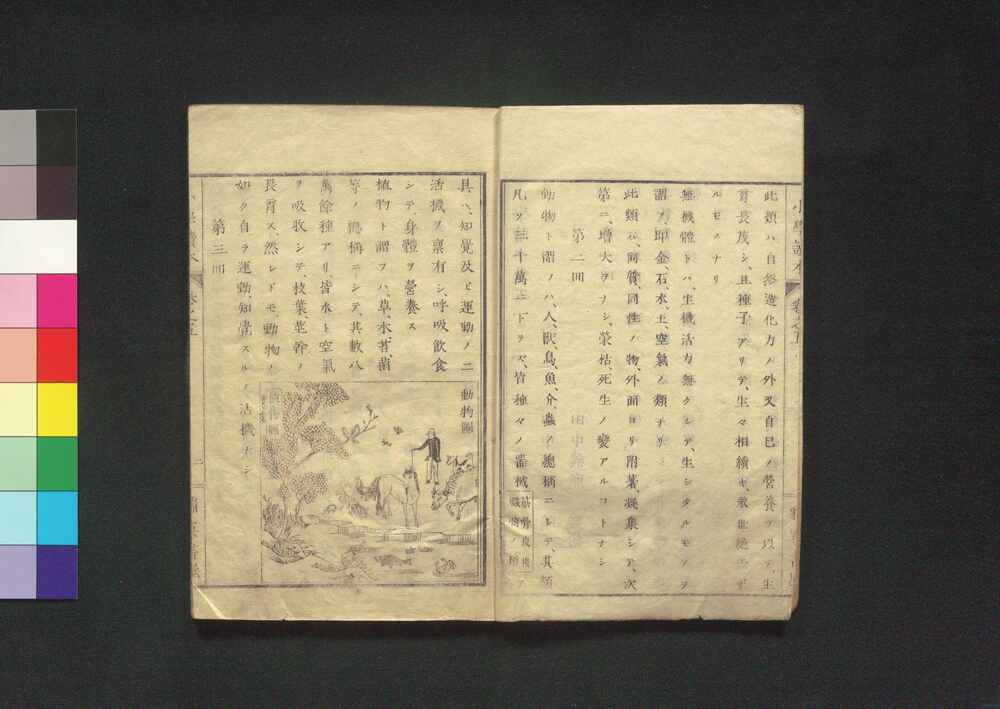 此類ハ自然造化力ノ外又自己ノ營養ヲ以テ生
育長茂シ、且種子アリテ、生々相續キ、永世絶エザ
ルモノナリ
無機體トハ、生機活力無クシテ、生シタルモノヲ
謂フ、即金、石、水、土、空氣ノ類ナリ
此類ハ、同質、同性ノ物、外面ヨリ附著、凝集シテ、次
第ニ增大ヲナシ、榮枯、死生ノ變アルコトナシ
第二回
動物ト謂フハ、人、獸、鳥、魚、介、蟲ノ總稱ニシテ、其類
凡ソ二十萬ニ下ラズ、皆種々ノ器械
具ヘ、知覺及ビ運動ノ二
活機ヲ稟有シ、呼吸飮食
シテ、身體ヲ營養ス
植物ト謂フハ、草、木、苔、菌
等ノ總稱ニシテ、其數八
萬餘種アリ、皆水ト空氣
ヲ吸收シテ、枝葉、莖幹ノ
長育ス、然レドモ、動物ノ
如ク自ラ運動、知覺スルノ活機ナシ
第三回
動物圖